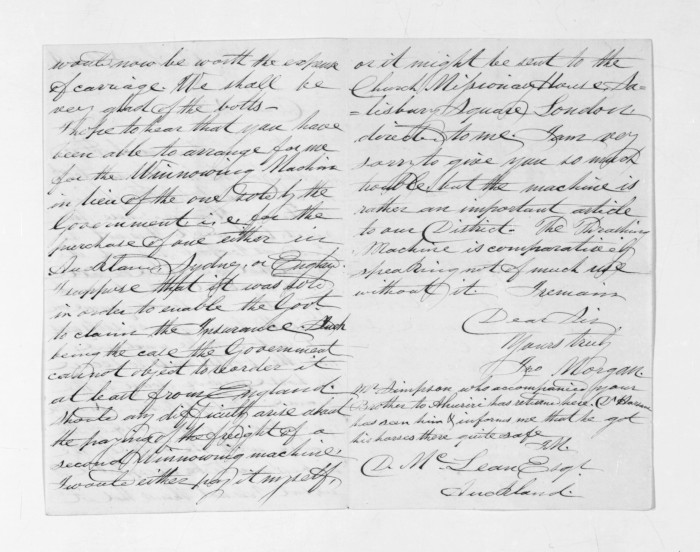 would now be worth the expense
of carriage. We shall be
very glad of the bolts -
I hope to hear that you have
been able to arrange for me
for the Winnowing Machine
in lieu of the one sold by the
Government i.e. for the
purchase of one either in
Auckland, Sydney, or England.
I suppose that it was sold
in order to enable the Govt.
to claim the Insurance. Such
being the case the Government
cannot object to order it
at least from England.
Should any difficulty arise about
the payment of the freight of a
second Winnowing machine,
I would either pay it myself,
or it might be sent to the
Church Missionary House Sa=
=lisbury Square London
directed to me. I am very
sorry to give you so much
trouble, but the machine is
rather an important article
to our District. The Thrashing
Machine is comparatively
speaking not of much use
without it. I remain
Dear Sir,
Yours truly
Jno Morgan.
Mr Simpson, who accompanied your
Brother to Ahuriri has returned here. Dr
has seen him & informs me that he got
his horses there quite safe
J.M.
D. McLean Esqr.
Auckland.